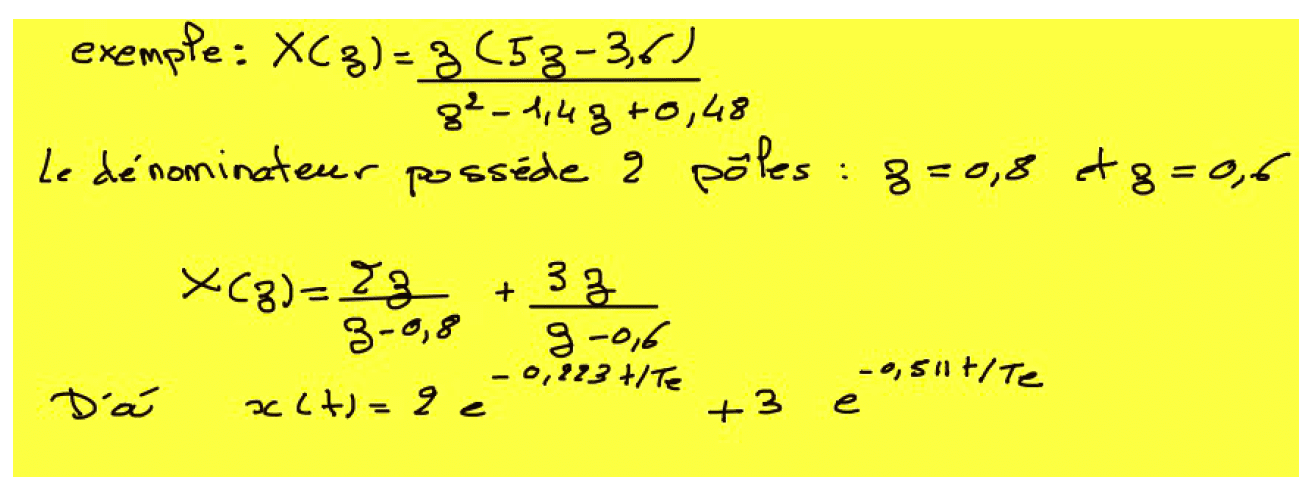 exemple: X(z) = z(5z-3,6)
z² - 1,4z + 0,48
Le dénominateur posséde 2 pôles : z = 0,8 et z = 0,6
X(z) = 2z / z-0,8 + 3z / z-0,6
D'où x(t) = 2 e^-0,223t/Te + 3 e^-0,511t/Te